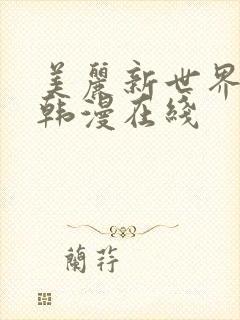 美麗新世界
韩漫在綫
蘭荇